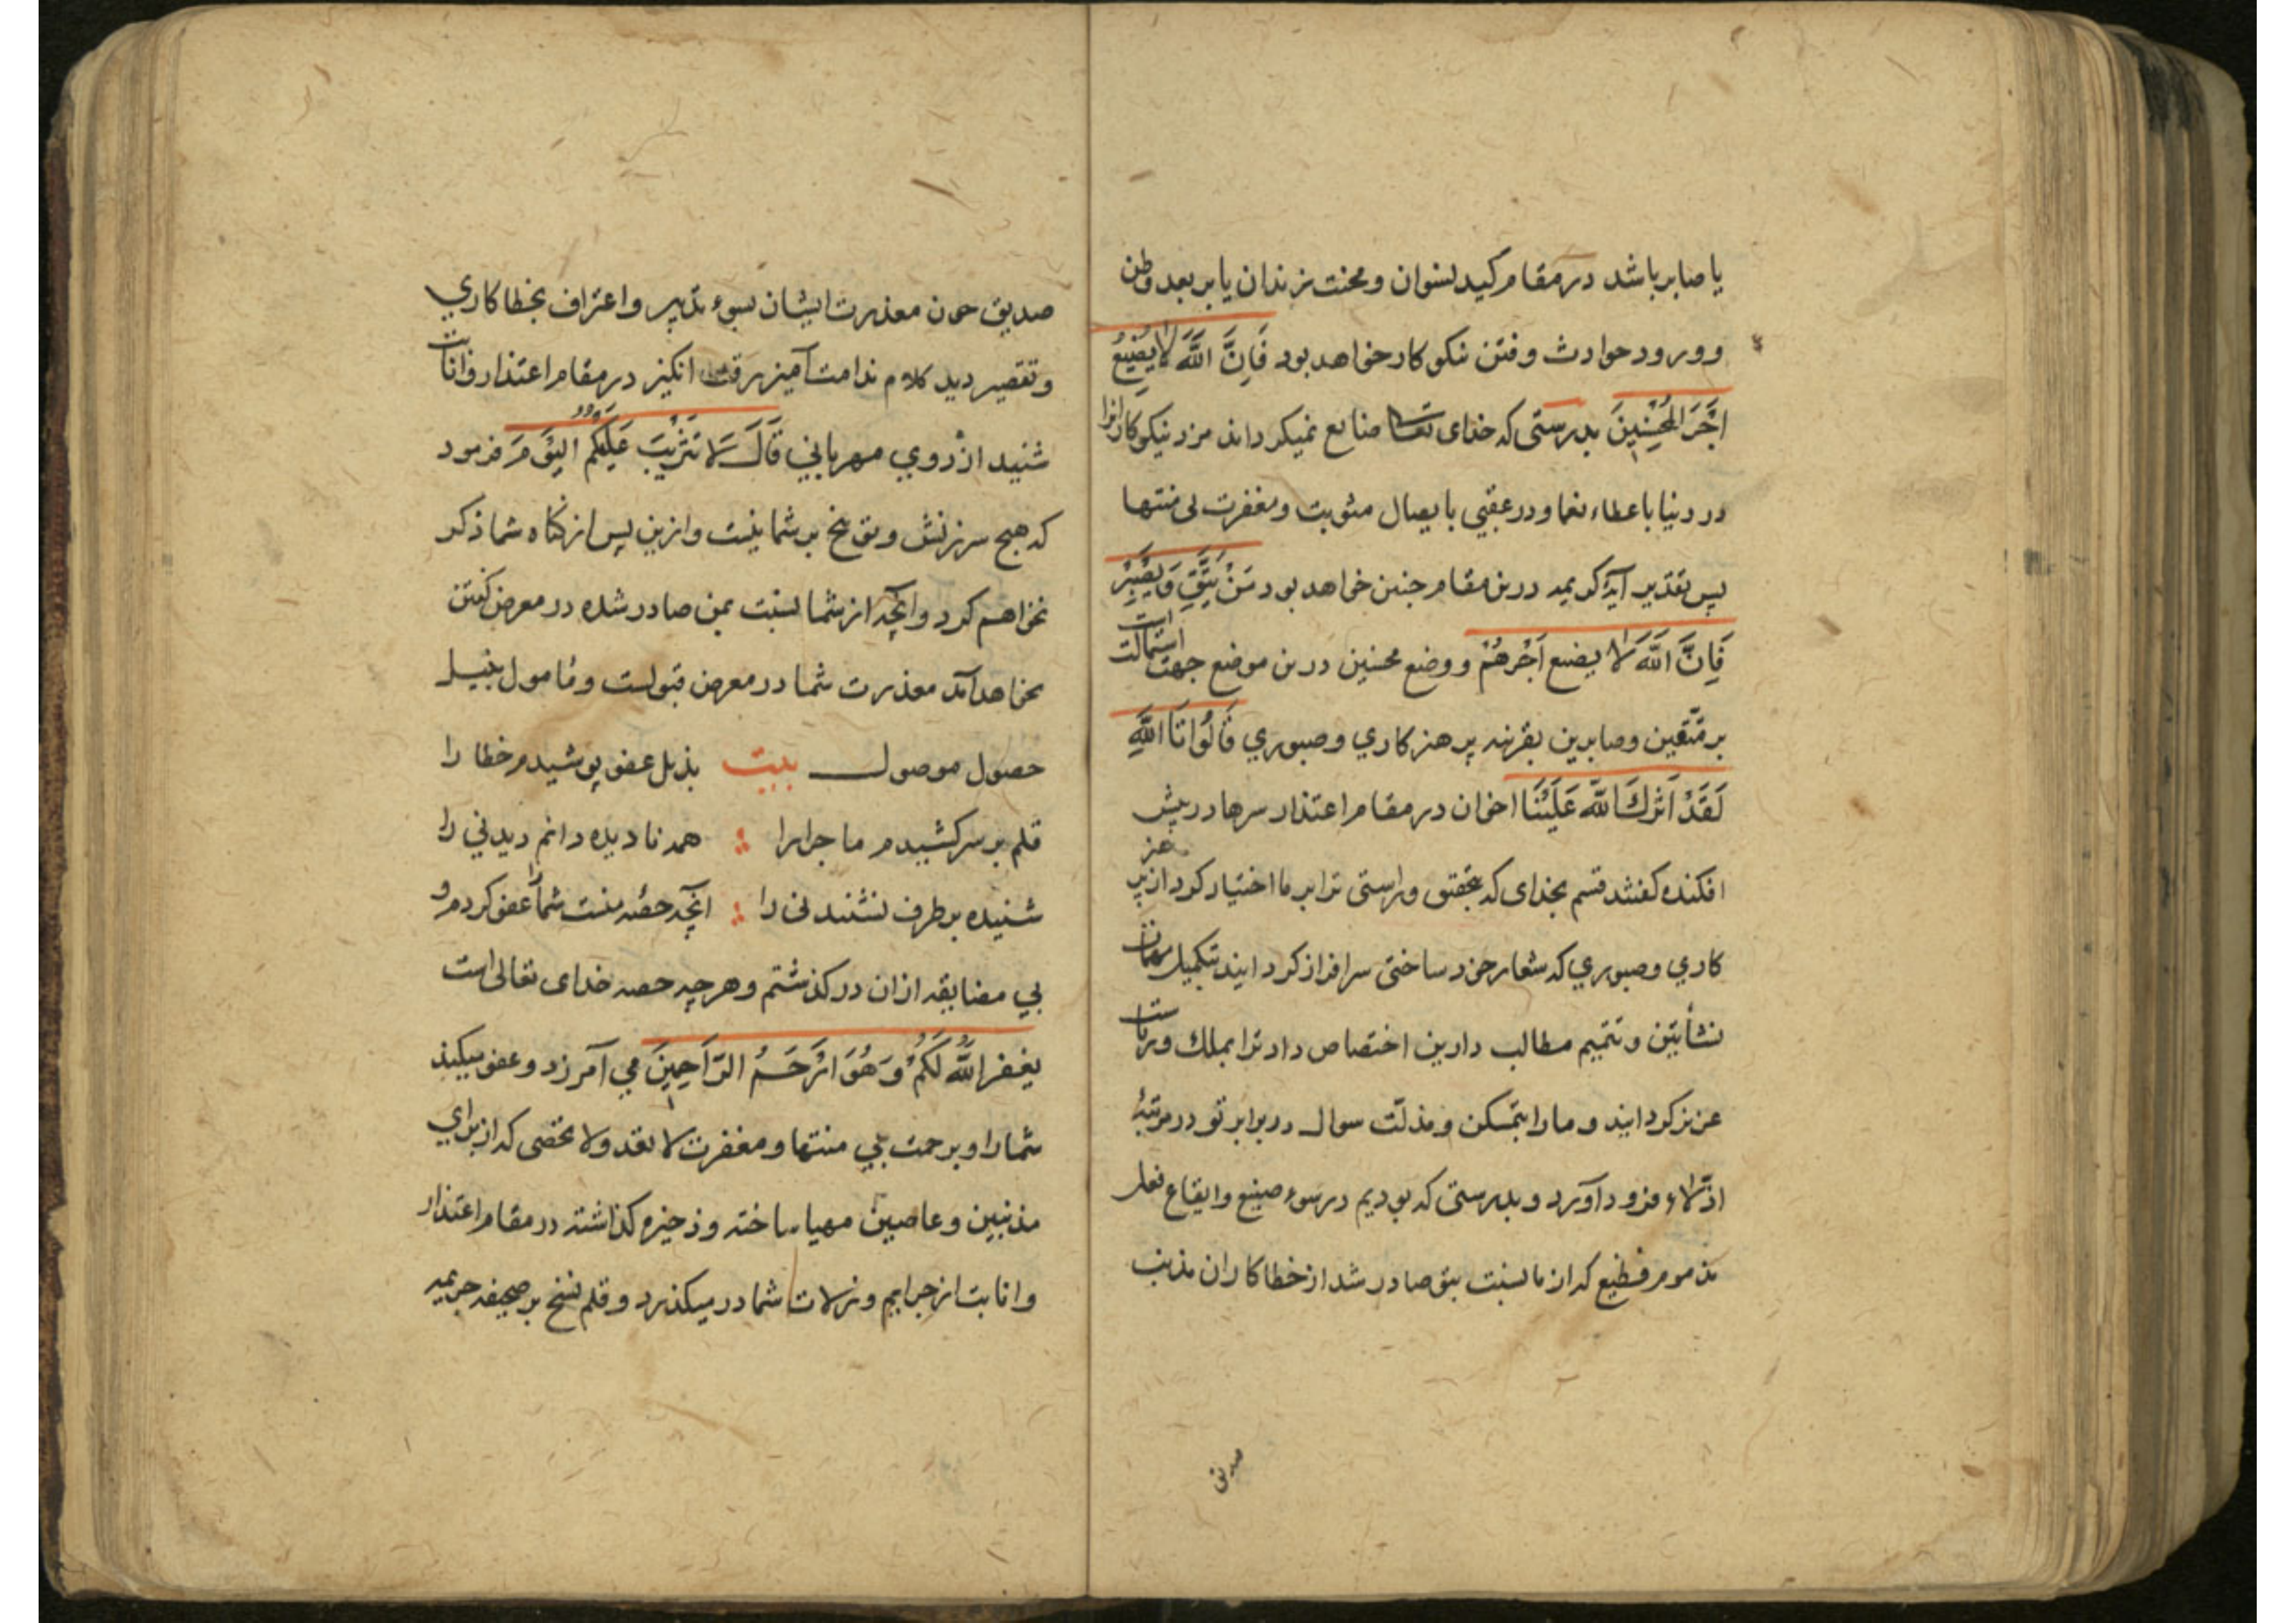 یا صابر باشد در مقام کید نسوان و محنت زندان یا بر بعد وطن
و ورود حوادث و فتن نیکو کار خواهد بود فَاِنَّ اللَّهَ لَا یُضِیعُ
اَجْرَ المُحْسِنِینَ بدرستی که خدای تعا ضایع نمیکرداند مزد نیکوکارانرا
در دنیا باعطاء نعما و در عقبی بایصال مثوبت و مغفرت بی منتها
پس تقدیر آیهٔ کریمه درین مقام چنین خواهد بود مَنْ یَتَّقِ وَیَصْبِرْ
فَاِنَّ اللَّهَ لَا یضیع اَجْرَهُمْ و وضع محسنین درین موضع جهت استمالت است
بر متّقین و صابرین بقرینه پرهیزکاری و صبوری قَالُوا تَاللَّهِ
لَقَدْ آثَرَكَ اللَّهُ عَلَیْنَا اخوان در مقام اعتذار سرها در پیش
افکنده کفتند قسم بخدای که بتحقیق و راستی ترا بر ما اختیار کرد از پرهیز
کاری و صبوری که شعار خود ساختی سرافراز کردانید بتکمیل مهمات
نشأتین و تتمیم مطالب دارین اختصاص داد ترا بملك و ریاست
عزیز کردانید و ما را بتمسکن و مذلّت سوال در برابر تو در مرتبهٔ
اذلّاء فرود آورد و بدرستی که بودیم در سوء صنیع و ایقاع فعل
مذموم فظیع که از ما نسبت بتو صادر شد از خطاکاران مذنب
صدیق
صدیق چون معذرت ایشان بسوء تدبیر و اعتراف بخطاکاری
و تقصیر دید کلام ندامت آمیز رقت انکیز در مقام اعتذار و انابت
شنید از روی مهربانی قَالَ لَا تَثْرِیبَ عَلَیْكُمُ الیَوْمَ فرمود
که هیچ سرزنش و توبیخ بر شما نیست و ازین پس از کناه شما ذکر
نخواهم کرد و آنچه از شما نسبت بمن صادر شده در معرض کفتن
نخواهد آمد معذرت شما در معرض قبولست و مامول بنیل
حصول موصول بیت بذیل عفو پوشیدم خطا را
قلم بر سر کشیدم ماجرا را همه نادیده دانم دیدنی را
شنیده برطرف نشنیدنی را آنچه حصّه منست شما را عفو کردم و
بی مضایقه ازان در کذشتم و هرچه حصه خدای تعالی است
یغفر اللَّهُ لَكُمْ وَهُوَ اَرْحَمُ الرَّاحِمِینَ می آمرزد و عفو میکند
شما را و برحمت بی منتها و مغفرت لا تعد و لا تحصی که از برای
مذنبین و عاصیین مهیا ساخته و ذخیره کذاشته در مقام اعتذار
و انابت از جرایم و زلات شما در میکذرد و قلم نسخ بر صحیفه جریمه